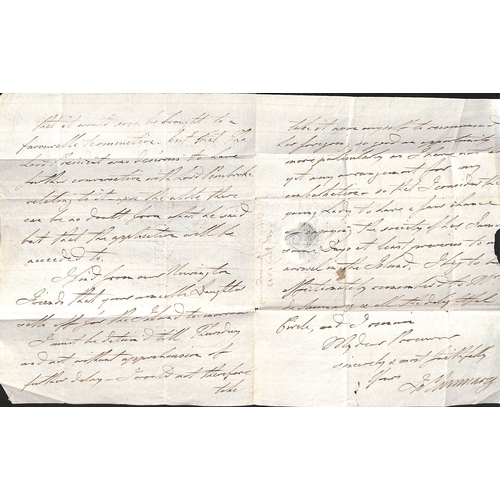 that it would soon be brought to a
favourable termination. but that the
Lord President was desirous to have
further conversation with Lord Pembroke
relating to it upon the whole there
can be no doubt from what he said
but that the application will be
acceded to.
I find from our Newington
Friends that your amiable Daughter
sets off for the Island tomorrow
I must be detained till Thursday
and not without apprehension of
further delay. I would not therefore
take
take it upon myself to recommend
her foregoing so good an opportunity
more particularly as I have not as
yet any arrangement for my
embarkation so that I consider the
young Lady to have a fair chance
enjoying the society of his
some days at least previous to my
arrival in the Island. I beg to be
affectionately remembered to
and all the
Circle, and I remain
My dear
sincerely & most faithfully
Yours